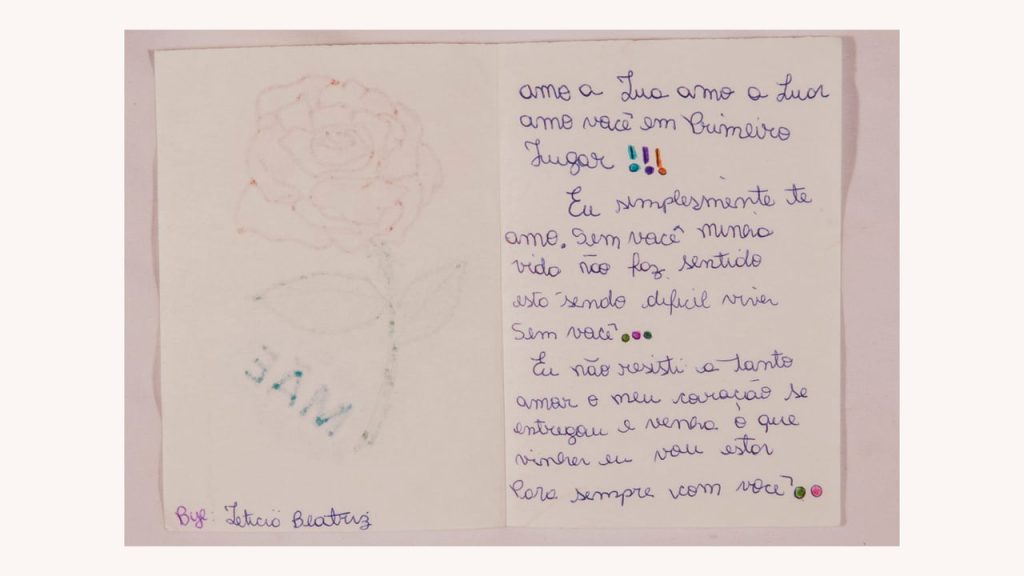 MÃE
Bye: Leticia Beatriz
amo a Lua amo a Luar
amo você em Primeiro
Lugar !!!
Eu simplesmente te
amo. Sem você minha
vida não faz sentido
esta sendo dificil viver
Sem você...
Eu não resisti a tanto
amor o meu coração se
entregou e venha o que
vinher eu vou estar
Para sempre com você